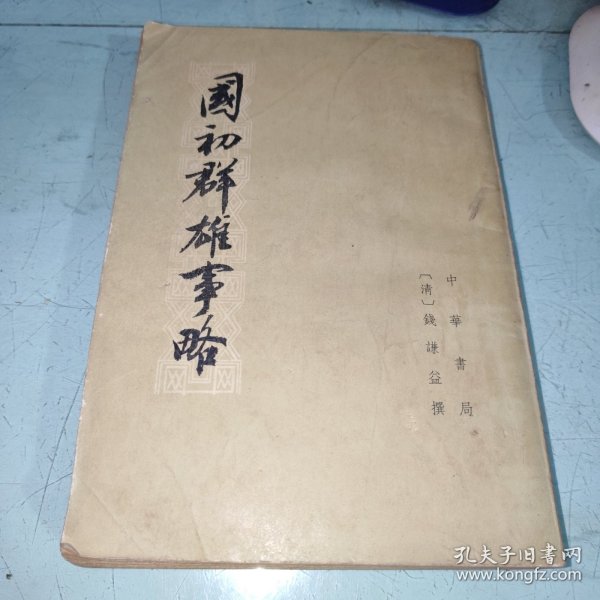 國初群雄事略
中華書局
〔清〕錢謙益撰
孔夫子旧書网
www.kongfz.com